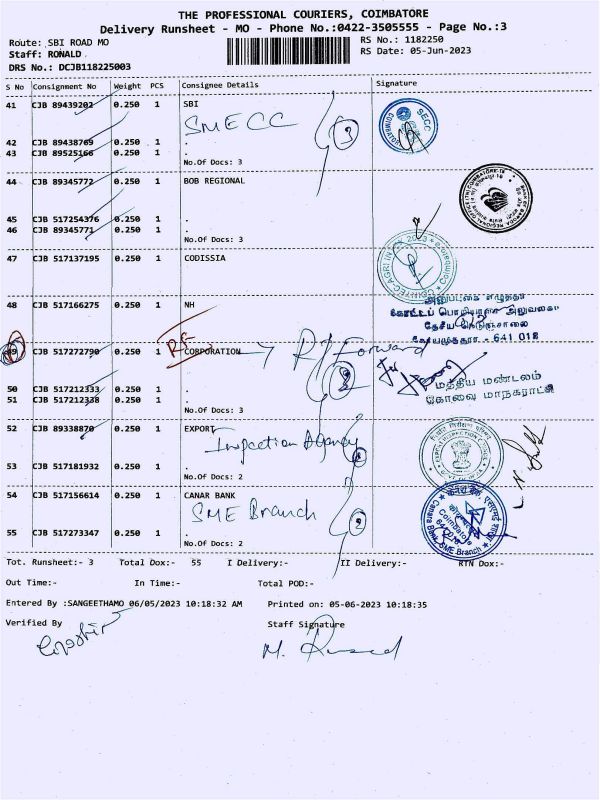 THE PROFESSIONAL COURIERS, COIMBATORE
Delivery Runsheet - MO - Phone No.:0422-3505555 - Page No.:3
Route: SBI ROAD MO
RS No.: 1182250
Staff: RONALD
RS Date: 05-Jun-2023
DRS No.: DCJB118225003
S No Consignment No Weight PCS Consignee Details Signature
41 CJB 89439202 0.250 1 SBI
SMECC
3
SECC
42 CJB 89438769 0.250 1 .
43 CJB 89525166 0.250 1 .
No.Of Docs: 3
44 CJB 89345772 0.250 1 BOB REGIONAL
45 CJB 517254376 0.250 1 .
46 CJB 89345771 0.250 1 .
No.Of Docs: 3
47 CJB 517137195 0.250 1 CODISSIA
48 CJB 517166275 0.250 1 NH
தேசிய நெடுஞ்சாலை
641 018
RF
49 CJB 517272790 0.250 1 CORPORATION → R/Forward
50 CJB 517212333 0.250 1 .
51 CJB 517212338 0.250 1 .
மத்திய மண்டலம்
கோவை மாநகராட்சி
No.Of Docs: 3
52 CJB 89338870 0.250 1 EXPORT
Inspection Agency
53 CJB 517181932 0.250 1 .
No.Of Docs: 2
54 CJB 517156614 0.250 1 CANAR BANK
SME Branch
2
Canara Bank, SME Branch
Coimbatore
55 CJB 517273347 0.250 1 .
No.Of Docs: 2
Tot. Runsheet:- 3 Total Dox:- 55 I Delivery:- II Delivery:- RTN Dox:-
Out Time:- In Time:- Total POD:-
Entered By :SANGEETHAMO 06/05/2023 10:18:32 AM Printed on: 05-06-2023 10:18:35
Verified By Staff Signature